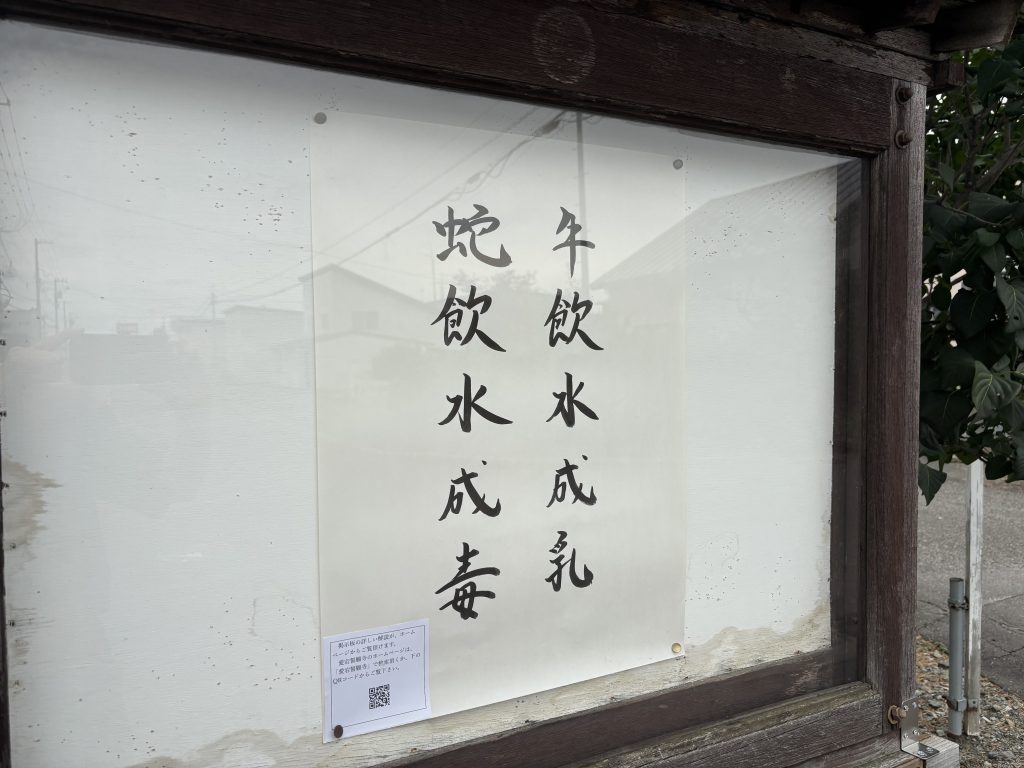 牛飲水成乳
蛇飲水成毒
掲示板の詳しい解説が、ホーム
ページからご覧頂けます。
愛宕誓願寺のホームページは、
「愛宕誓願寺」で検索頂くか、下の
QRコードからご覧下さい。